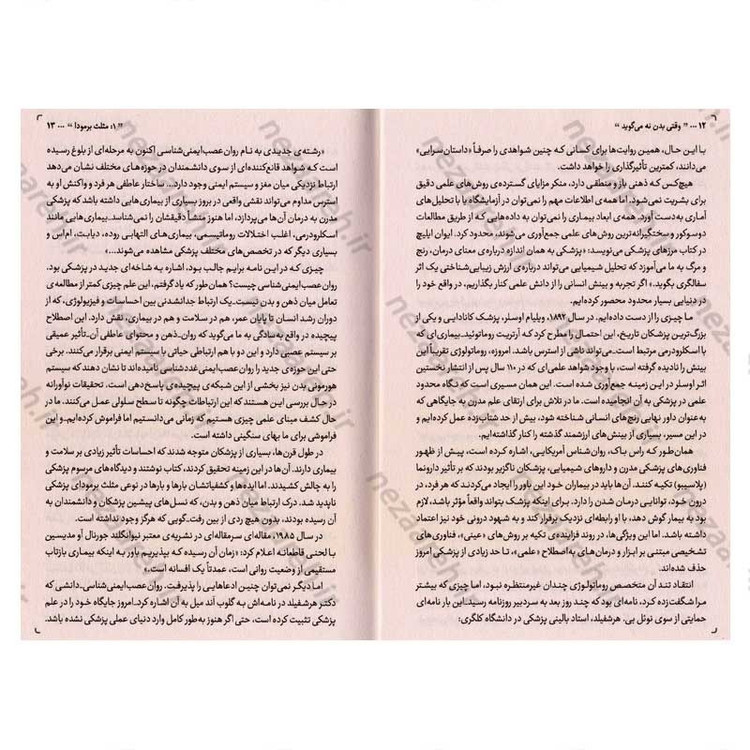 ۱۲ ... " وقتی بدن نه می‌گوید "
با این حال، همین روایت‌ها برای کسانی که چنین شواهدی را صرفاً «داستان‌سرایی»
می‌دانند، کمترین تأثیرگذاری را خواهد داشت.
هیچ‌کس که ذهنی باز و منطقی دارد، منکر مزایای گسترده‌ی روش‌های علمی دقیق
برای بشریت نمی‌شود. اما همه‌ی اطلاعات مهم را نمی‌توان در آزمایشگاه یا با تحلیل‌های
آماری به‌دست آورد. همه‌ی ابعاد بیماری را نمی‌توان به داده‌هایی که از طریق مطالعات
دوسوکور و سختگیرانه‌ترین روش‌های علمی جمع‌آوری می‌شوند، محدود کرد. ایوان ایلیچ
در کتاب مرزهای پزشکی می‌نویسد: «پزشکی به همان اندازه درباره‌ی معنای درمان، رنج
و مرگ به ما می‌آموزد که تحلیل شیمیایی می‌تواند درباره‌ی ارزش زیبایی‌شناختی یک اثر
سفالگری بگوید.» اگر تجربه و بینش انسانی را از دانش علمی کنار بگذاریم، در واقع خود را
در دنیایی بسیار محدود محصور کرده‌ایم.
ما چیزی را از دست داده‌ایم. در سال ۱۸۹۲، ویلیام اوسلر، پزشک کانادایی و یکی از
بزرگ‌ترین پزشکان تاریخ، این احتمال را مطرح کرد که آرتریت روماتوئید_بیماری‌ای که
با اسکلرودرمی مرتبط است_می‌تواند ناشی از استرس باشد. امروز، روماتولوژی تقریباً این
بینش را نادیده گرفته است، با وجود شواهد علمی‌ای که در ۱۱۰ سال پس از انتشار نخستین
اثر اوسلر در این زمینه جمع‌آوری شده است. این همان مسیری است که نگاه محدود
علمی در پزشکی به آن انجامیده است. ما در تلاش برای ارتقای علم مدرن به جایگاهی که
به‌عنوان داور نهایی رنج‌های انسانی شناخته شود، بیش از حد شتاب‌زده عمل کرده‌ایم و
در این مسیر، بسیاری از بینش‌های ارزشمند گذشته را کنار گذاشته‌ایم.
همان‌طور که راس باک، روان‌شناس آمریکایی، اشاره کرده است، پیش از ظهور
فناوری‌های پزشکی مدرن و داروهای شیمیایی، پزشکان ناگزیر بودند که بر تأثیر دارونما
(پلاسیبو) تکیه کنند. آن‌ها باید در بیماران خود این باور را ایجاد می‌کردند که هر فرد، در
درون خود، توانایی درمان شدن را دارد. برای اینکه پزشک بتواند واقعاً مؤثر باشد، لازم
بود به بیمار گوش دهد، با او رابطه‌ای نزدیک برقرار کند و به شهود درونی خود نیز اعتماد
داشته باشد. اما این ویژگی‌ها، در روند فزاینده‌ی تکیه بر روش‌های «عینی»، فناوری‌های
تشخیصی مبتنی بر ابزار و درمان‌های به‌اصطلاح «علمی»، تا حد زیادی از پزشکی امروز
حذف شده‌اند.
انتقاد تند آن متخصص روماتولوژی چندان غیرمنتظره نبود، اما چیزی که بیشتر
مرا شگفت‌زده کرد، نامه‌ای بود که چند روز بعد به سردبیر روزنامه رسید_این بار نامه‌ای
حمایتی از سوی نوئل بی. هرشفیلد، استاد بالینی پزشکی در دانشگاه کلگری:
" ۱: مثلث برمودا " ... ۱۳
«رشته‌ی جدیدی به نام روان‌عصب‌ایمنی‌شناسی اکنون به مرحله‌ای از بلوغ رسیده
است که شواهد قانع‌کننده‌ای از سوی دانشمندان در حوزه‌های مختلف نشان می‌دهد
ارتباط نزدیکی میان مغز و سیستم ایمنی وجود دارد... ساختار عاطفی هر فرد و واکنش او به
استرس مداوم می‌تواند نقشی واقعی در بروز بسیاری از بیماری‌هایی داشته باشد که پزشکی
مدرن به درمان آن‌ها می‌پردازد، اما هنوز منشأ دقیقشان را نمی‌شناسد. بیماری‌هایی مانند
اسکلرودرمی، اغلب اختلالات روماتیسمی، بیماری‌های التهابی روده، دیابت، ام‌اس و
بسیاری دیگر که در تخصص‌های مختلف پزشکی مشاهده می‌شوند...»
چیزی که در این نامه برایم جالب بود، اشاره به شاخه‌ای جدید در پزشکی بود.
روان‌عصب‌ایمنی‌شناسی چیست؟ همان‌طور که یاد گرفتم، این علم چیزی کمتر از مطالعه‌ی
تعامل میان ذهن و بدن نیست_یک ارتباط جدانشدنی بین احساسات و فیزیولوژی، که از
دوران رشد انسان تا پایان عمر، هم در سلامت و هم در بیماری، نقش دارد. این اصطلاح
پیچیده در واقع به‌سادگی به ما می‌گوید که روان_ذهن و محتوای عاطفی آن_تأثیر عمیقی
بر سیستم عصبی دارد و این دو با هم ارتباطی حیاتی با سیستم ایمنی برقرار می‌کنند. برخی
حتی این حوزه‌ی جدید را روان‌عصب‌ایمنی‌غددشناسی نامیده‌اند تا نشان دهند که سیستم
هورمونی بدن نیز بخشی از این شبکه‌ی پیچیده‌ی پاسخ‌دهی است. تحقیقات نوآورانه
در حال بررسی این هستند که این ارتباطات چگونه تا سطح سلولی عمل می‌کنند. ما در
حال کشف مبنای علمی چیزی هستیم که زمانی می‌دانستیم اما فراموش کرده‌ایم_و این
فراموشی برای ما بهای سنگینی داشته است.
در طول قرن‌ها، بسیاری از پزشکان متوجه شدند که احساسات تأثیر زیادی بر سلامت و
بیماری دارند. آن‌ها در این زمینه تحقیق کردند، کتاب نوشتند و دیدگاه‌های مرسوم پزشکی
را به چالش کشیدند. اما ایده‌ها و کشفیاتشان بارها و بارها در نوعی مثلث برمودای پزشکی
ناپدید شد. درک ارتباط میان ذهن و بدن، که نسل‌های پیشین پزشکان و دانشمندان به
آن رسیده بودند، بدون هیچ ردی از بین رفت_گویی که هرگز وجود نداشته است.
در سال ۱۹۸۵، مقاله‌ای سرمقاله‌ای در نشریه‌ی معتبر نیوانگلند جورنال آو مدیسین
با لحنی قاطعانه اعلام کرد: «زمان آن رسیده که بپذیریم باور به اینکه بیماری بازتاب
مستقیمی از وضعیت روانی است، عمدتاً یک افسانه است.»
اما دیگر نمی‌توان چنین ادعاهایی را پذیرفت. روان‌عصب‌ایمنی‌شناسی_دانشی که
دکتر هرشفیلد در نامه‌اش به گلوب آند میل به آن اشاره کرد_امروز جایگاه خود را در علم
پزشکی تثبیت کرده است، حتی اگر هنوز به‌طور کامل وارد دنیای عملی پزشکی نشده باشد.
nezareh.ir